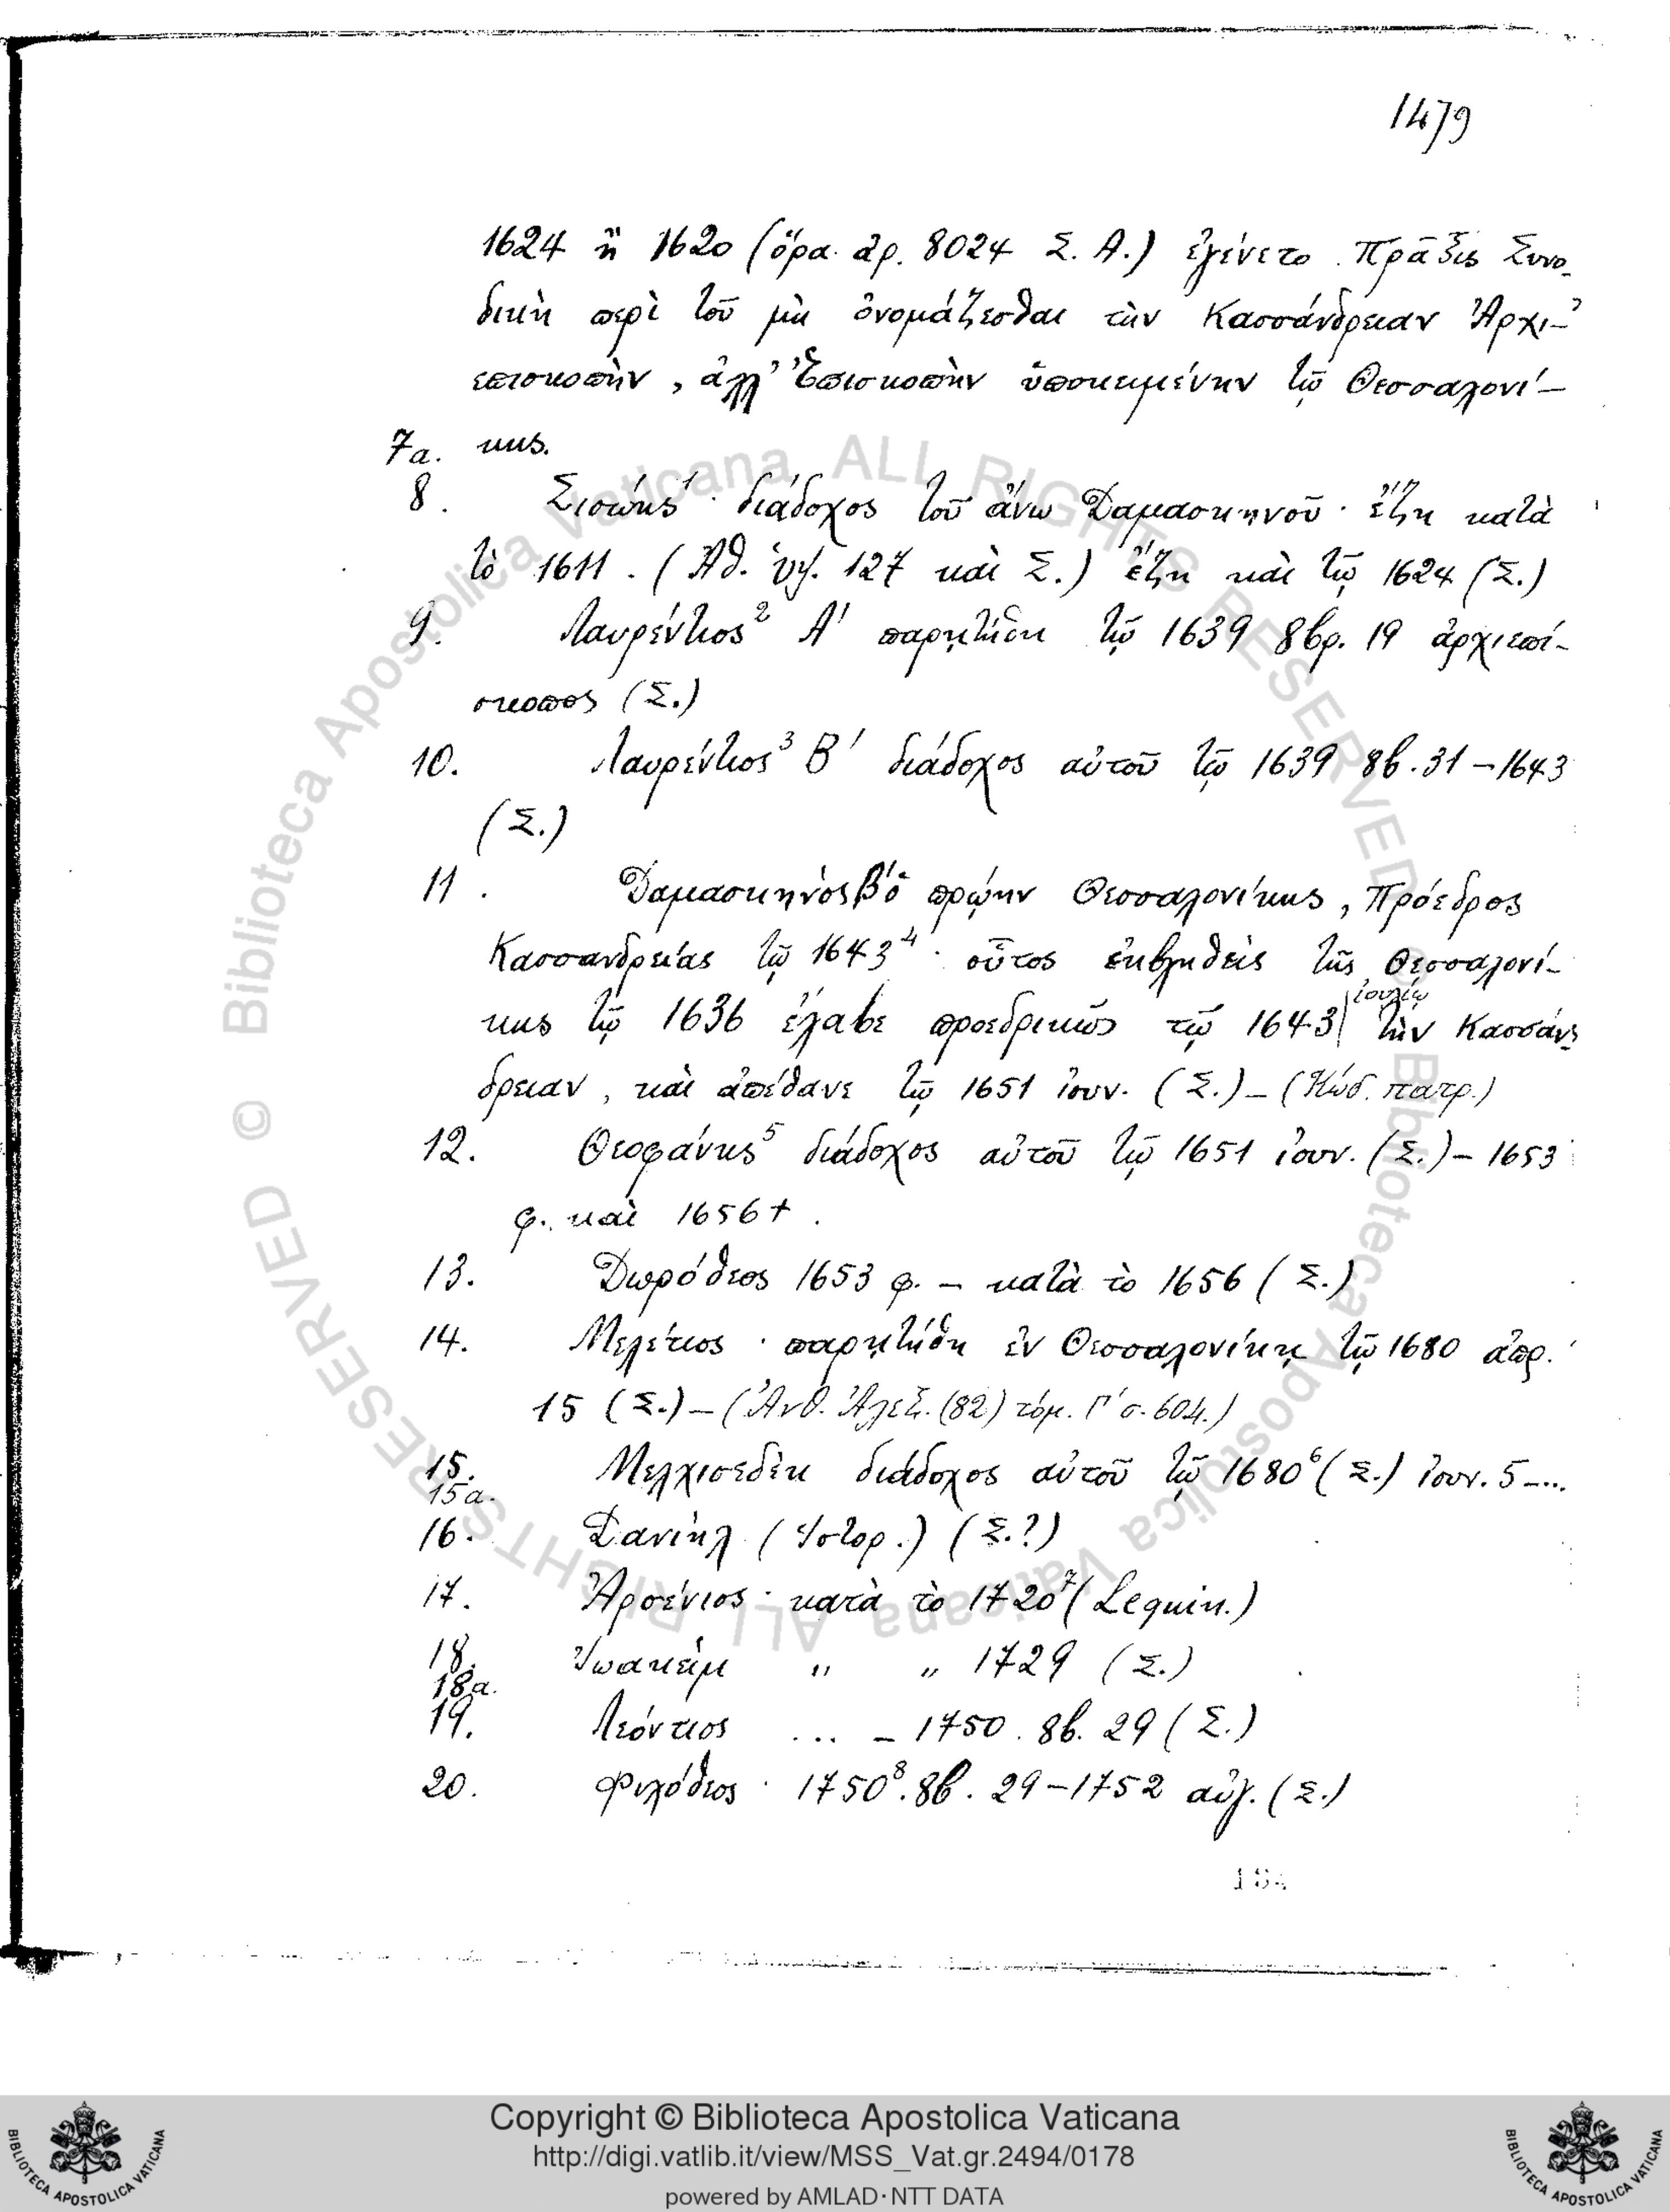 1479
1624 ἢ 1620 (ὅρα ἀρ. 8024 Σ. Α.) ἐγένετο Πρᾶξις Συνο-
δικὴ περὶ τοῦ μὴ ὀνομάζεσθαι τὴν Κασσάνδρειαν Ἀρχι-
επισκοπὴν, ἀλλ' Ἐπισκοπὴν ὑποκειμένην τῷ Θεσσαλονί-
κης.
7α.
8. Σισώης¹ · διάδοχος τοῦ ἄνω Δαμασκηνοῦ · ἔζη κατὰ
τὸ 1611. (Ἀθ. Ὑψ. 127 καὶ Σ.) ἔζη καὶ τῷ 1624 (Σ.)
9. Λαυρέντιος² Α' παρῃτήθη τῷ 1639 8βρ. 19 ἀρχιεπί-
σκοπος (Σ.)
10. Λαυρέντιος³ Β' διάδοχος αὐτοῦ τῷ 1639 8β. 31 – 1643
(Σ.)
11. Δαμασκηνὸς Β' ὁ πρώην Θεσσαλονίκης, Πρόεδρος
Κασσανδρείας τῷ 1643⁴ · οὗτος ἐκβληθεὶς τῆς Θεσσαλονί-
κης τῷ 1636 ἔλαβε προεδρικῶς τῷ 1643 ἰουλίῳ τὴν Κασσάν-
δρειαν, καὶ ἀπέθανε τῷ 1651 ἰουν. (Σ.) – (Κώδ. πατρ.)
12. Θεοφάνης⁵ διάδοχος αὐτοῦ τῷ 1651 ἰουν. (Σ.) – 1653
φ. καὶ 1656 +.
13. Δωρόθεος 1653 φ. – κατὰ τὸ 1656 (Σ.)
14. Μελέτιος · παρῃτήθη ἐν Θεσσαλονίκῃ τῷ 1680 ἀπρ.
15 (Σ.) – (Ἀνθ. Ἀλεξ. (82) τόμ. Γ' σ. 604.)
15. Μελχισεδὲκ διάδοχος αὐτοῦ τῷ 1680⁶ (Σ.) ἰουν. 5 – ...
15α.
16. Δανιὴλ (Ἱστορ.) (Σ.?)
17. Ἀρσένιος · κατὰ τὸ 1720⁷ (Lequin.)
18. Ἰωακεὶμ " " 1729 (Σ.)
18α.
19. Λεόντιος ... – 1750. 8β. 29 (Σ.)
20. Φιλόθεος · 1750⁸. 8β. 29 – 1752 αὐγ. (Σ.)
© Biblioteca Apostolica Vaticana ALL RIGHTS RESERVED © Biblioteca Apostolica Vaticana ALL RIGHTS RESERVED
Copyright © Biblioteca Apostolica Vaticana
http://digi.vatlib.it/view/MSS_Vat.gr.2494/0178
powered by AMLAD·NTT DATA
BIBLIOTECA APOSTOLICA VATICANA
BIBLIOTECA APOSTOLICA VATICANA